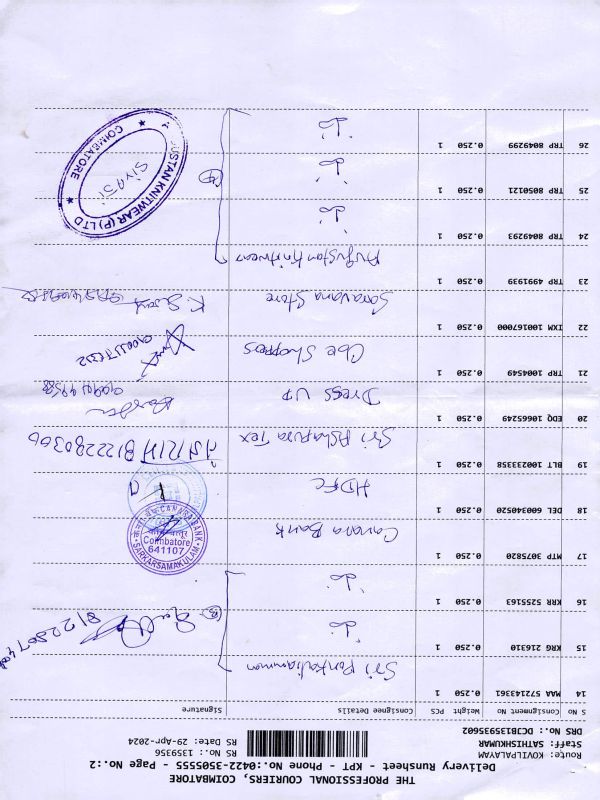 THE PROFESSIONAL COURIERS, COIMBATORE
Delivery Runsheet - KPT - Phone No.:0422-3505555 - Page No.:2
Route: KOVILPALAYAM RS No.: 1359356
Staff: SATHISHKUMAR RS Date: 29-Apr-2024
DRS No.: DCJB135935602
S No Consignment No Weight PCS Consignee Details Signature
14 MAA 572143361 0.250 1 Sri Ponkaliamman
15 KRG 216310 0.250 1
16 KRR 5255163 0.250 1
17 MTP 3075820 0.250 1 Canara Bank
CANARA BANK
Coimbatore
641107
SARKARSAMAKULAM
18 DEL 600340520 0.250 1 HDFC
19 BLT 100233358 0.250 1 Sri Ashapura Tex 8122280306
20 EDQ 10665249 0.250 1 Dress UP
21 TRP 1004549 0.250 1 Cbe Shoppers
22 IXM 100167000 0.250 1 Saravana Store
23 TRP 4991939 0.250 1
24 TRP 8049293 0.250 1
25 TRP 8050121 0.250 1
26 TRP 8049299 0.250 1
USTAN KNITWEAR (P) LTD
COIMBATORE